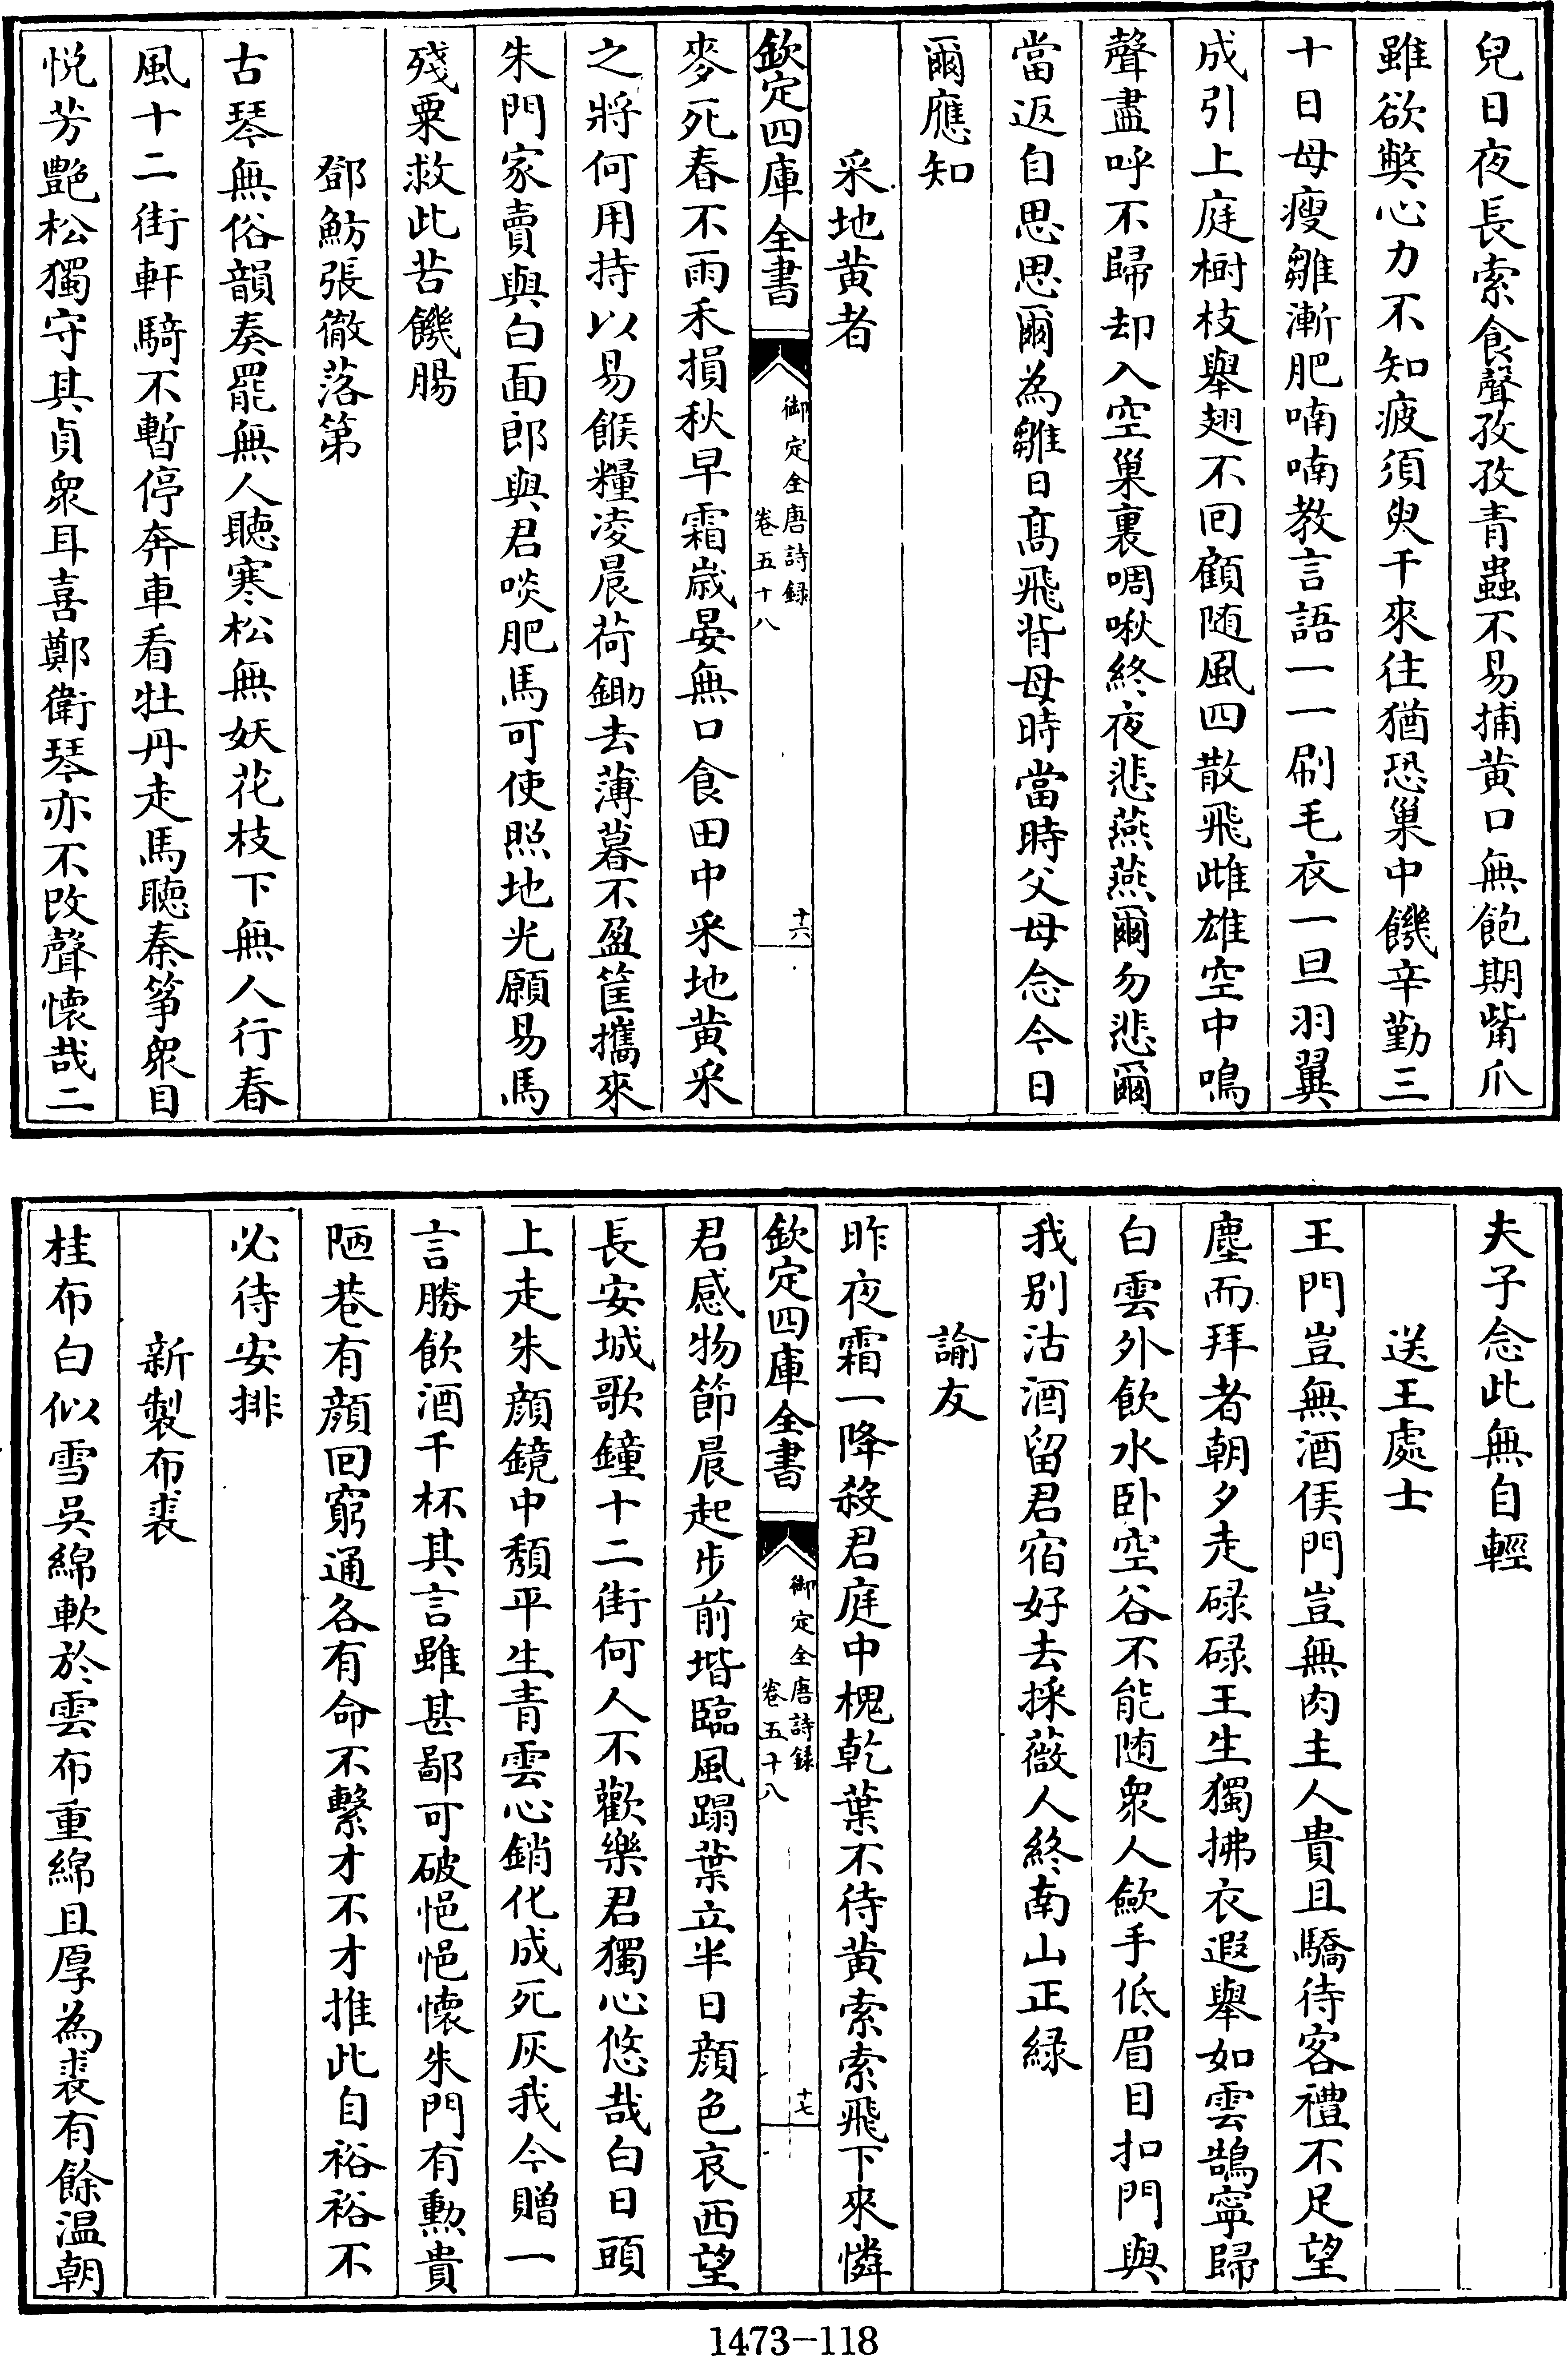 兒日夜長索食聲孜孜青蟲不易捕黄口無飽期觜爪
雖欲弊心力不知疲須臾千來往猶恐巢中饑辛勤三
十日母瘦雛漸肥喃喃教言語一一刷毛衣一旦羽翼
成引上庭樹枝舉翅不回顧随風四散飛雌雄空中鳴
聲盡呼不歸却入空巢裏啁啾終夜悲燕燕爾勿悲爾
當返自思思爾為雛日髙飛背母時當時父母念今日
爾應知
采地黄者
欽定四庫全書
御定全唐詩録
卷五十八
十六
麥死春不雨禾損秋早霜歳晏無口食田中采地黄采
之將何用持以易餱糧凌晨荷鋤去薄暮不盈筐攜來
朱門家賣與白面郎與君啖肥馬可使照地光願易馬
殘粟救此苦饑腸
鄧魴張徹落第
古琴無俗韻奏罷無人聽寒松無妖花枝下無人行春
風十二街軒騎不暫停奔車看牡丹走馬聽秦筝衆目
悦芳艷松獨守其貞衆耳喜鄭衛琴亦不改聲懷哉二
夫子念此無自輕
送王處士
王門豈無酒侯門豈無肉主人貴且驕待客禮不足望
塵而拜者朝夕走碌碌王生獨拂衣遐舉如雲鵠寧歸
白雲外飲水卧空谷不能随衆人歛手低眉目扣門與
我别沽酒留君宿好去採薇人終南山正緑
諭友
昨夜霜一降殺君庭中槐乾葉不待黄索索飛下來憐
欽定四庫全書
御定全唐詩録
卷五十八
十七
君感物節晨起步前堦臨風蹋葉立半日顔色哀西望
長安城歌鐘十二街何人不歡樂君獨心悠哉白日頭
上走朱顔鏡中頽平生青雲心銷化成死灰我今贈一
言勝飲酒千杯其言雖甚鄙可破悒悒懷朱門有勲貴
陋巷有顔回窮通各有命不繫才不才推此自裕裕不
必待安排
新製布裘
桂布白似雪吳綿軟於雲布重綿且厚為裘有餘温朝
1473-118